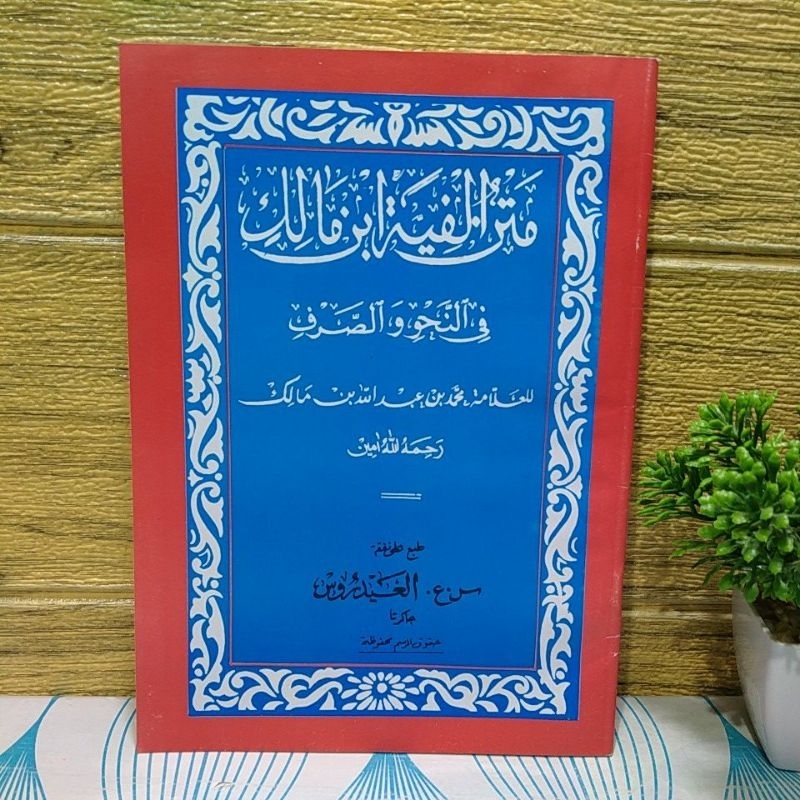 متن ألفية ابن مالك
في النَّحْوِ وَ الصَّرْفِ
للعلامة محمد بن عبد الله بن مالك
رَحِمَهُ اللهُ امين
طبع على نفقة
س.ع. العَيْدَرُوس
جاكرتا
حقوق الرسم محفوظة